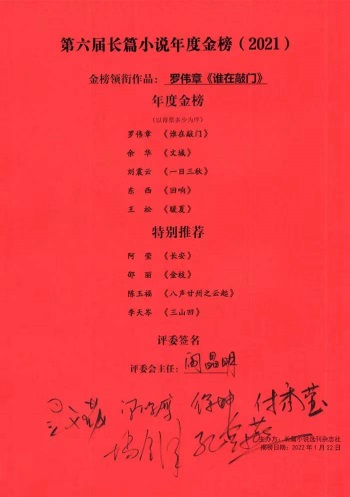 第六届长篇小说年度金榜（2021）
金榜领衔作品：罗伟章《谁在敲门》
年度金榜
（以得票多少为序）
罗伟章 《谁在敲门》
余 华 《文城》
刘震云 《一日三秋》
东 西 《回响》
王 松 《暖夏》
特别推荐
阿 莹 《长安》
邵 丽 《金枝》
陈玉福 《八声甘州之云起》
李天岑 《三山凹》
评委签名
评委会主任：阎晶明
付秀莹
主办方：长篇小说选刊杂志社
揭榜日期：2022年1月22日